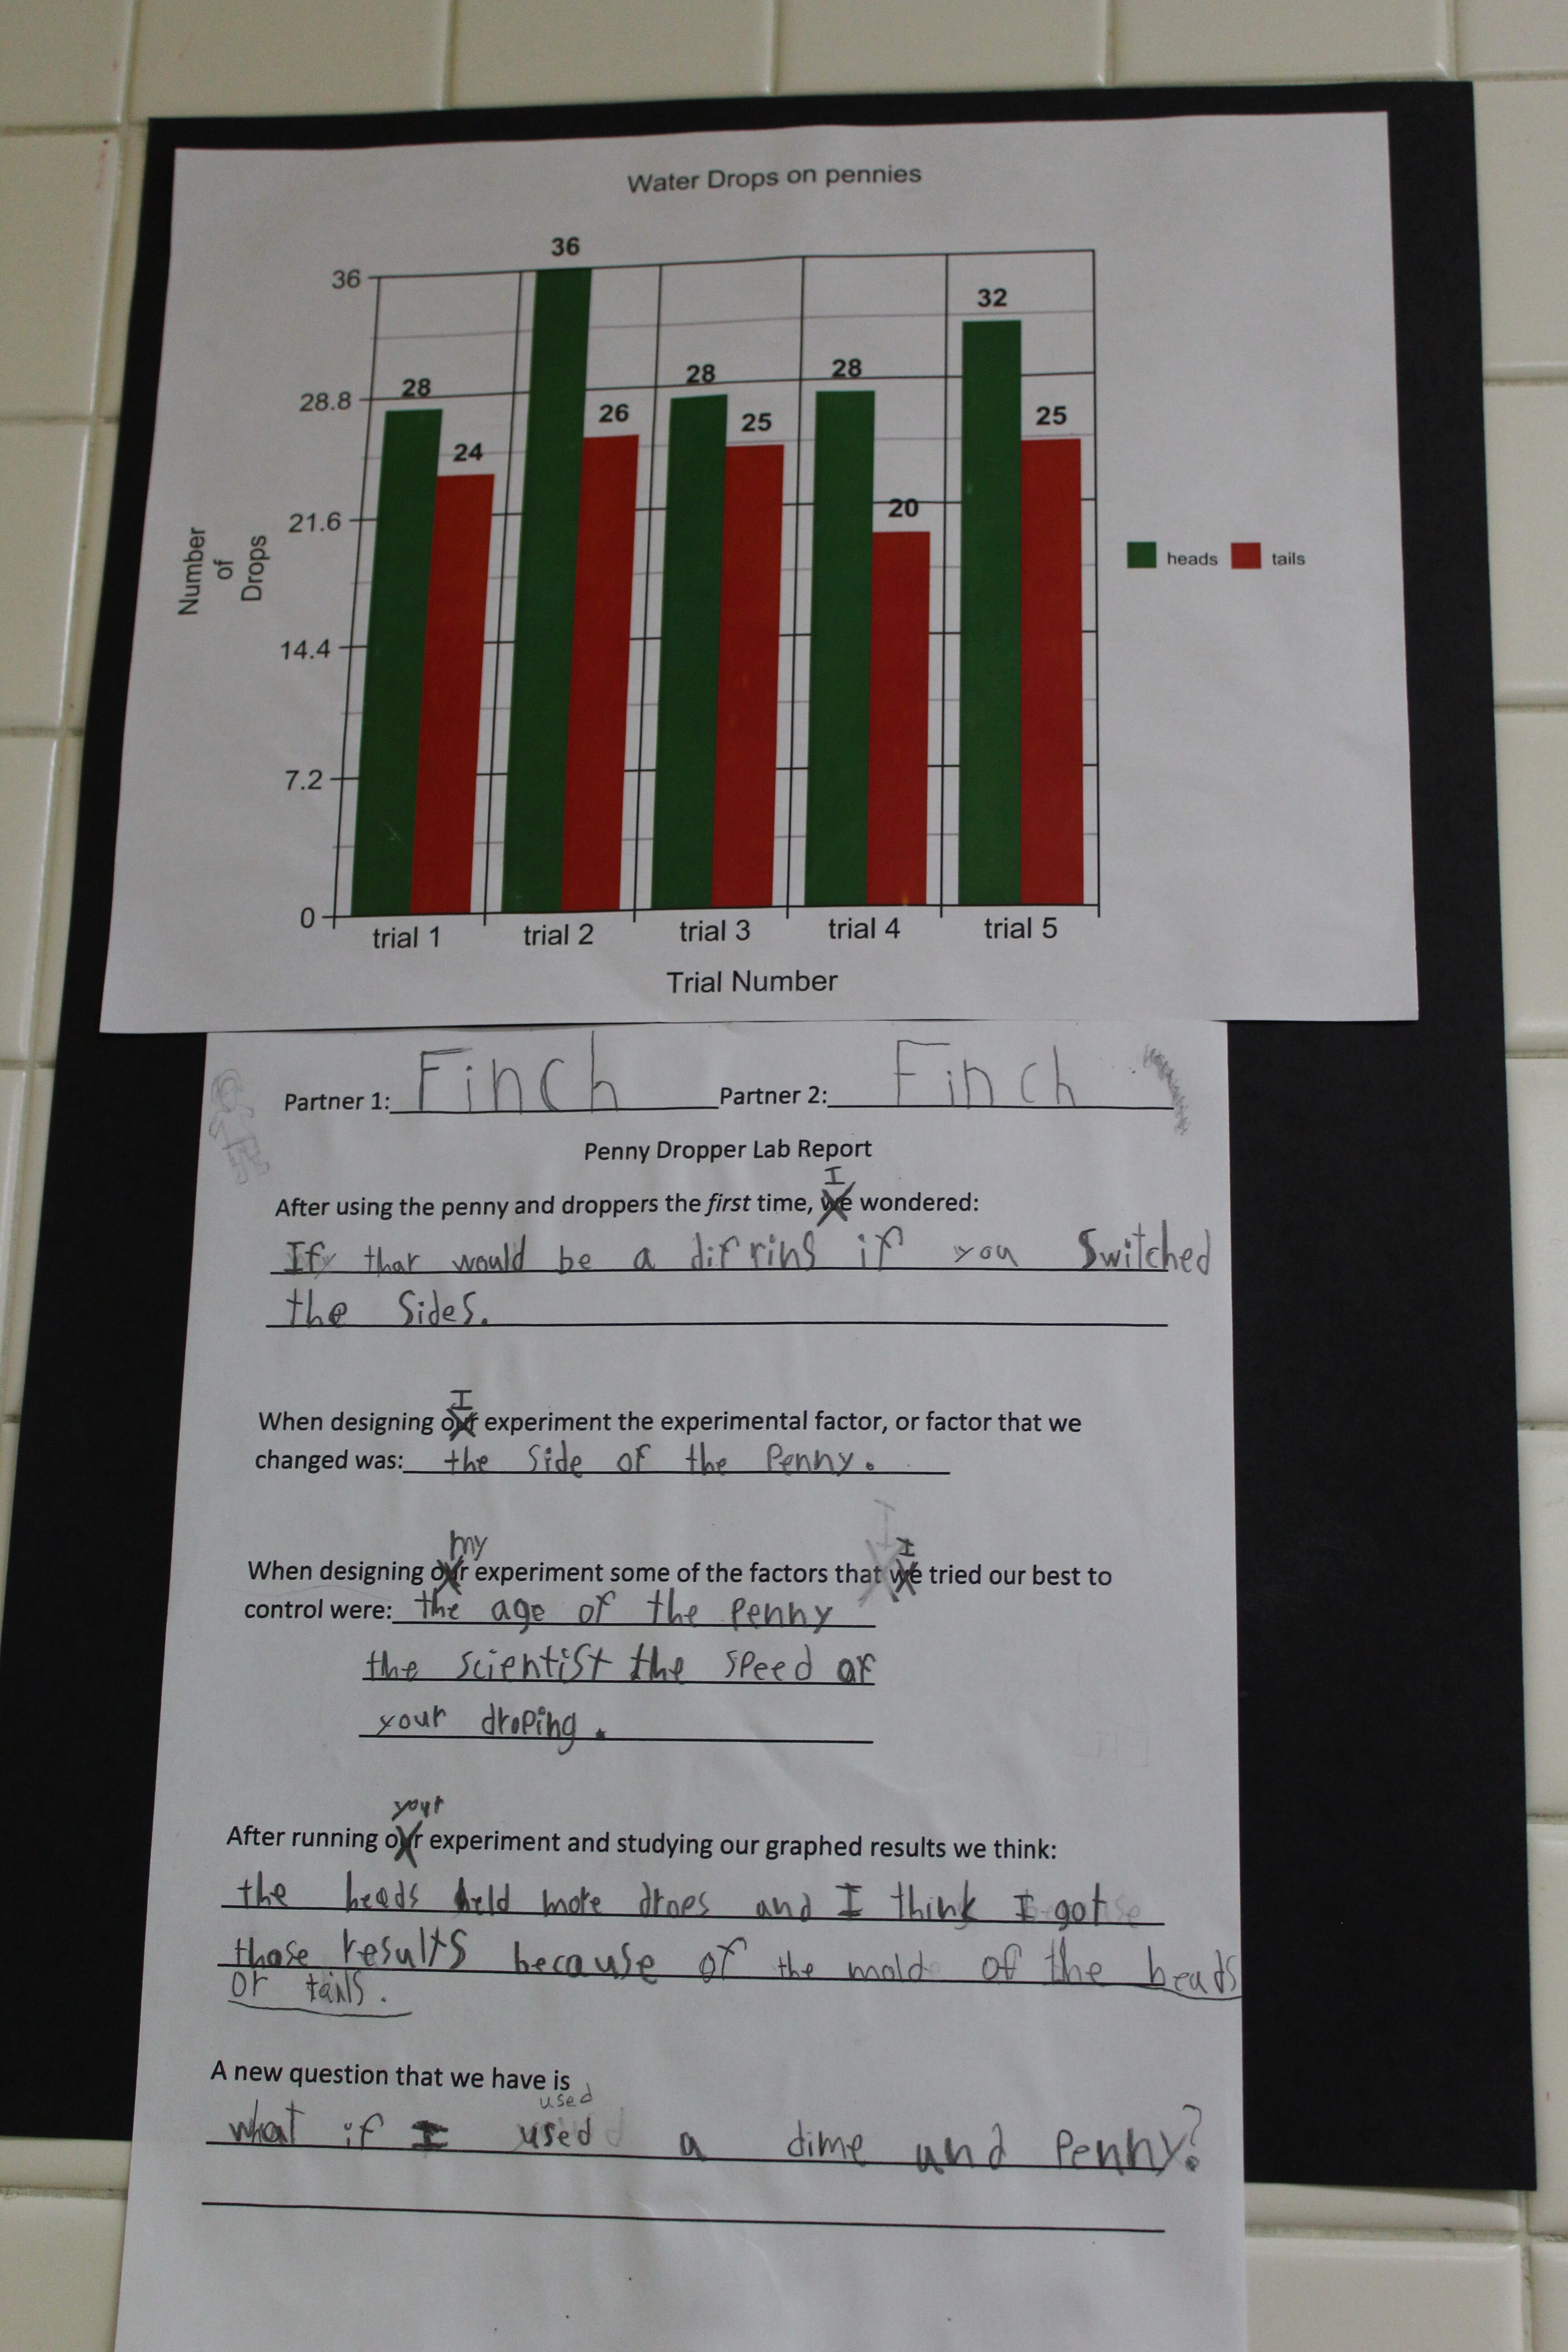 Water Drops on pennies
36
36
28.8
28
24
26
28
25
28
20
32
25
21.6
14.4
7.2
0
Number
of
Drops
heads tails
trial 1 trial 2 trial 3 trial 4 trial 5
Trial Number
Partner 1: Finch Partner 2: Finch
Penny Dropper Lab Report
I
After using the penny and droppers the first time, we wondered:
If thar would be a difrins if you Switched
the Sides.
I
When designing our experiment the experimental factor, or factor that we
changed was: the Side of the Penny.
my I
When designing our experiment some of the factors that we tried our best to
control were: the age of the Penny
the scientist the speed of
your droping.
your
After running our experiment and studying our graphed results we think:
the heads held more drops and I think I got
those results because of the mold of the heads
or tails.
A new question that we have is
used
what if I used a dime and Penny?